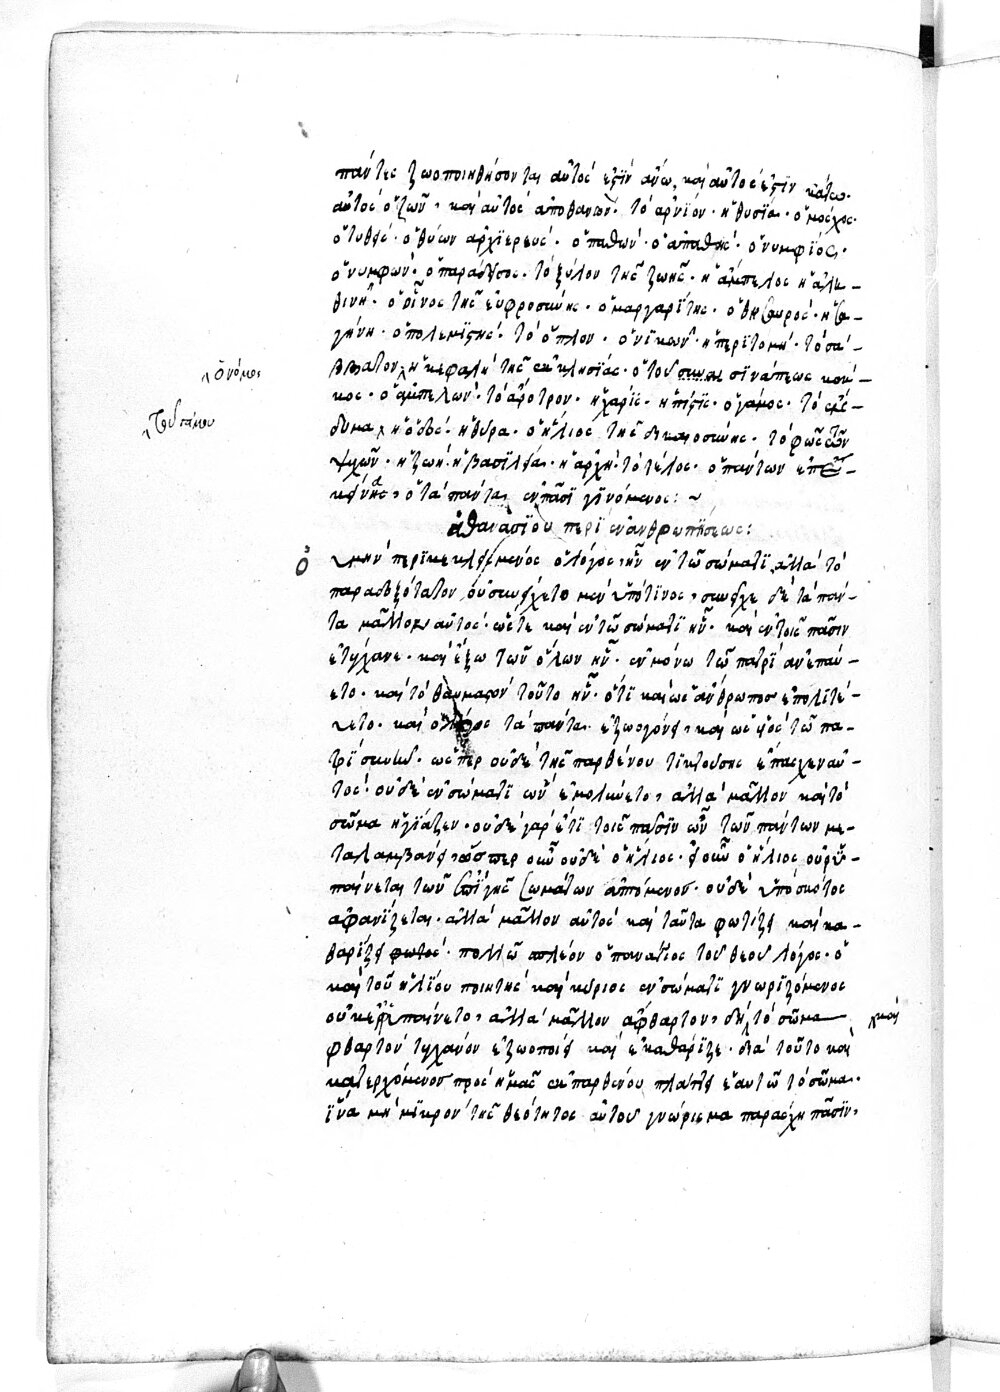 πάντες ζωοποιηθήσονται αὐτὸς ἐστὶν ἄνω, καὶ αὐτὸς ἐστὶν κάτω·
αὐτὸς ὁ ζῶν, καὶ αὐτὸς ἀποθανών· τὸ ἀρνίον· ἡ θυσία· ὁ μόσχος·
ὁ τυθεὶς· ὁ θύων ἀρχιερεύς· ὁ παθών· ὁ ἀπαθής· ὁ νυμφίος·
ὁ νυμφών· ὁ παράδεισος· τὸ ξύλον τῆς ζωῆς· ἡ ἄμπελος ἡ ἀλη-
θινή· ὁ οἶνος τῆς εὐφροσύνης· ὁ μαργαρίτης· ὁ θησαυρός· ἡ σα-
γήνη· ὁ πολεμιστής· τὸ ὅπλον· ὁ νικῶν· ἡ περιτομή· τὸ σά-
ββατον ἡ κεφαλὴ τῆς ἐκκλησίας· ὁ τοῦ σινάπεως κόκ-
ὁ νόμος
κος· ὁ ἀμπελών· τὸ ἄροτρον· ἡ χάρις· ἡ πίστις· ὁ γάμος· τὸ
τοῦ γάμου
δυμα ἡ ὁδός· ἡ θύρα· ὁ ἥλιος τῆς δικαιοσύνης· τὸ φῶς τῶν
ψυχῶν· ἡ ζωή· ἡ βασιλεία· ἡ ἀρχή· τὸ τέλος· ὁ πάντων
ὁ τὰ πάντα ἐν πᾶσι γινόμενος: ~
ἀθανασίου περὶ ἐνανθρωπήσεως:
Οὐ μὴν περικεκλεισμένος ὁ λόγος ἦν ἐν τῷ σώματι, ἀλλὰ τὸ
παραδοξότατον, οὐ συνείχετο μὲν ὑπό τινος, συνεῖχε δὲ τὰ πάν-
τα μᾶλλον αὐτός· ὥστε καὶ ἐν τῷ σώματι ἦν· καὶ ἐν τοῖς πᾶσιν
ἐτύγχανε· καὶ ἔξω τῶν ὅλων ἦν· ἐν μόνω τῷ πατρὶ ἀνεπαύ-
ετο· καὶ τὸ θαυμαστὸν τοῦτο ἦν· ὅτι καὶ ὡς ἄνθρωπος ἐπολιτε-
ύετο· καὶ ὁ λόγος τὰ πάντα ἐζωογόνει, καὶ ὡς υἱὸς τῷ πα-
τρὶ συνῆν· ὥσπερ οὐδὲ τῆς παρθένου τικτούσης ἔπασχεν αὐ-
τός· οὐδὲ ἐν σώματι ὢν ἐμολύνετο, ἀλλὰ μᾶλλον καὶ τὸ
σῶμα ἡγίαζεν· οὐδὲ γὰρ ἔτι τοῖς πᾶσιν ὢν τῶν πάντων με-
ταλαμβάνει, ὥσπερ οὖν οὐδὲ ὁ ἥλιος· εἰ οὖν ὁ ἥλιος οὐ ῥυ-
παίνεται τῶν ἐπὶ γῆς σωμάτων ἁπτόμενος· οὐδὲ ὑπὸ σκότος
ἀφανίζεται· ἀλλὰ μᾶλλον αὐτὸς καὶ ταῦτα φωτίζει καὶ κα-
θαρίζει φωτός· πολλῷ πλέον ὁ πανάγιος τοῦ θεοῦ λόγος· ὁ
καὶ τοῦ ἡλίου ποιητὴς καὶ κύριος ἐν σώματι γνωριζόμενος
οὐκ ἐρυπαίνετο, ἀλλὰ μᾶλλον ἄφθαρτον, διὸ τὸ σῶμα
καὶ
φθαρτὸν τυγχάνον ἐζωοποίει καὶ ἐκαθάριζε· διὰ τοῦτο καὶ
κατερχόμενος πρὸς ἡμᾶς ἐκ παρθένου πλάττει ἑαυτῷ τὸ σῶμα·
ἵνα μὴ μικρὸν τῆς θεότητος αὐτοῦ γνώρισμα παράσχη πᾶσιν,